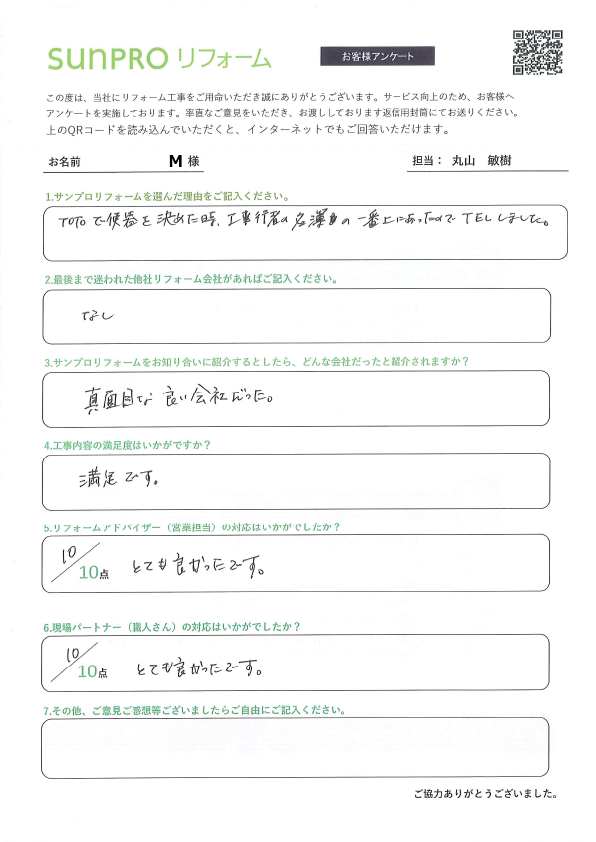 SUNPRO リフォーム
お客様アンケート
この度は、当社にリフォーム工事をご用命いただき誠にありがとうございます。サービス向上のため、お客様へ
アンケートを実施しております。率直なご意見をいただき、お渡ししております返信用封筒にてお送りください。
上のQRコードを読み込んでいただくと、インターネットでもご回答いただけます。
お名前 M 様 担当： 丸山 敏樹
1.サンプロリフォームを選んだ理由をご記入ください。
TOTOで便器を決めた時、工事行者の名簿の一番上にあったのでTELしました。
2.最後まで迷われた他社リフォーム会社があればご記入ください。
なし
3.サンプロリフォームをお知り合いに紹介するとしたら、どんな会社だったと紹介されますか？
真面目な良い会社だった。
4.工事内容の満足度はいかがですか？
満足です。
5.リフォームアドバイザー（営業担当）の対応はいかがでしたか？
10/10点 とても良かったです。
6.現場パートナー（職人さん）の対応はいかがでしたか？
10/10点 とても良かったです。
7.その他、ご意見ご感想等ございましたらご自由にご記入ください。
ご協力ありがとうございました。